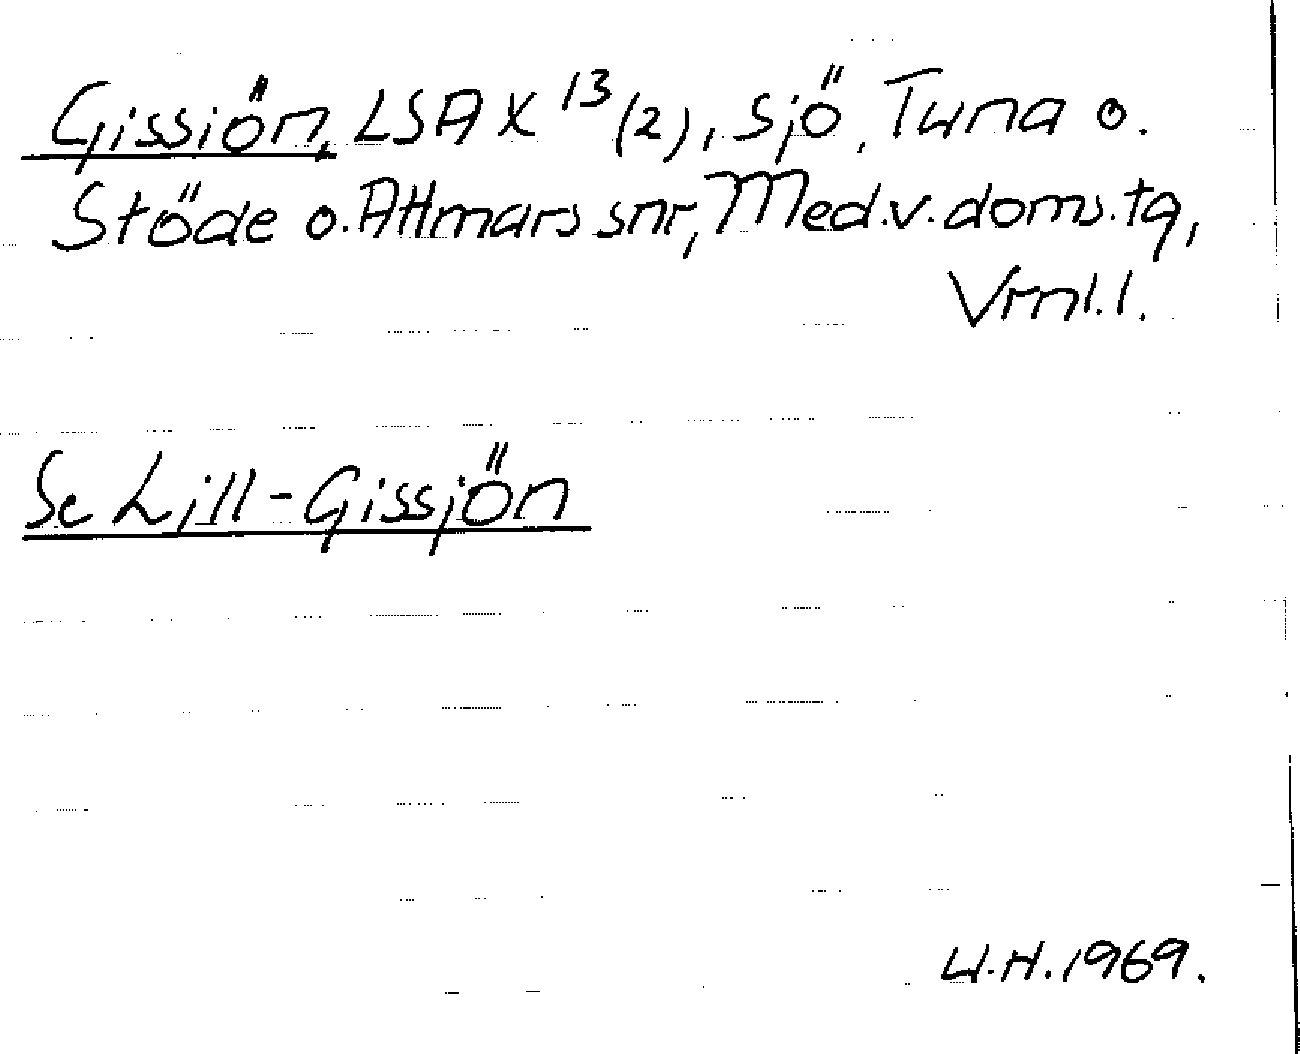 Gissiön, LSA X 13 (2), sjö, Tuna o.
Stöde o. Attmars snr, Med.v. doms.tg,
Vrnl.l.
Se Lill-Gissjön
U.H. 1969.